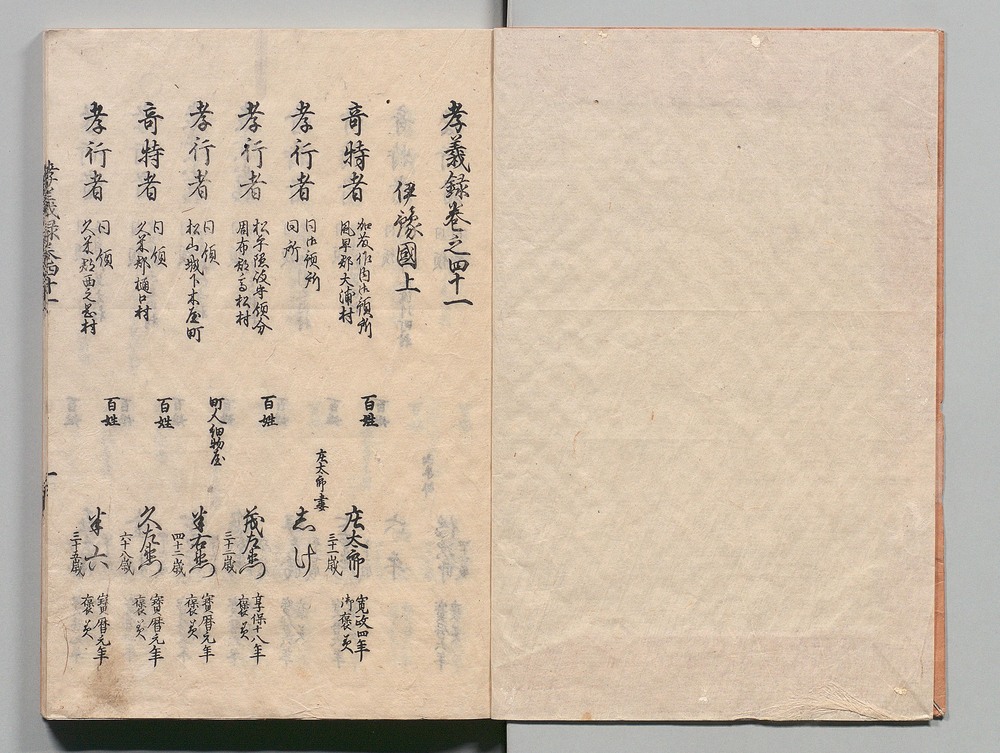 孝義録巻之四十一
伊豫國上
竒特者
加茂作内御預所
風早郡大浦村
百姓
庄太郎
三十二歳
寛政四年
御褒美
孝行者
同御預所
同所
庄太郎妻
志け
孝行者
松平隠岐守領分
周布郡高松村
百姓
茂左衛門
三十二歳
享保十八年
褒美
孝行者
同領
松山城下木屋町
町人細物屋
半右衛門
四十二歳
寳暦元年
褒美
竒特者
同領
久米郡樋口村
百姓
久左衛門
六十八歳
寳暦元年
褒美
孝行者
同領
久米郡西之岡村
百姓
半六
三十五歳
寳暦元年
褒美
孝義録巻四十一
一